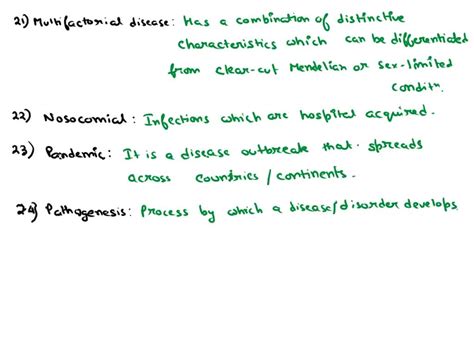 21) Multifactorial disease: Has a combination of distinctive
characteristics which can be differentiated
from clear-cut Mendelian or sex-limited
conditn.
22) Nosocomial: Infections which are hospital acquired.
23) Pandemic: It is a disease outbreak that spreads
across countries/continents.
24) Pathogenesis: Process by which a disease/disorder develops